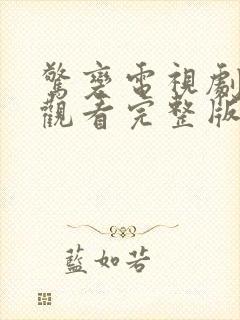 驚變電視劇
觀看完整版
藍如若